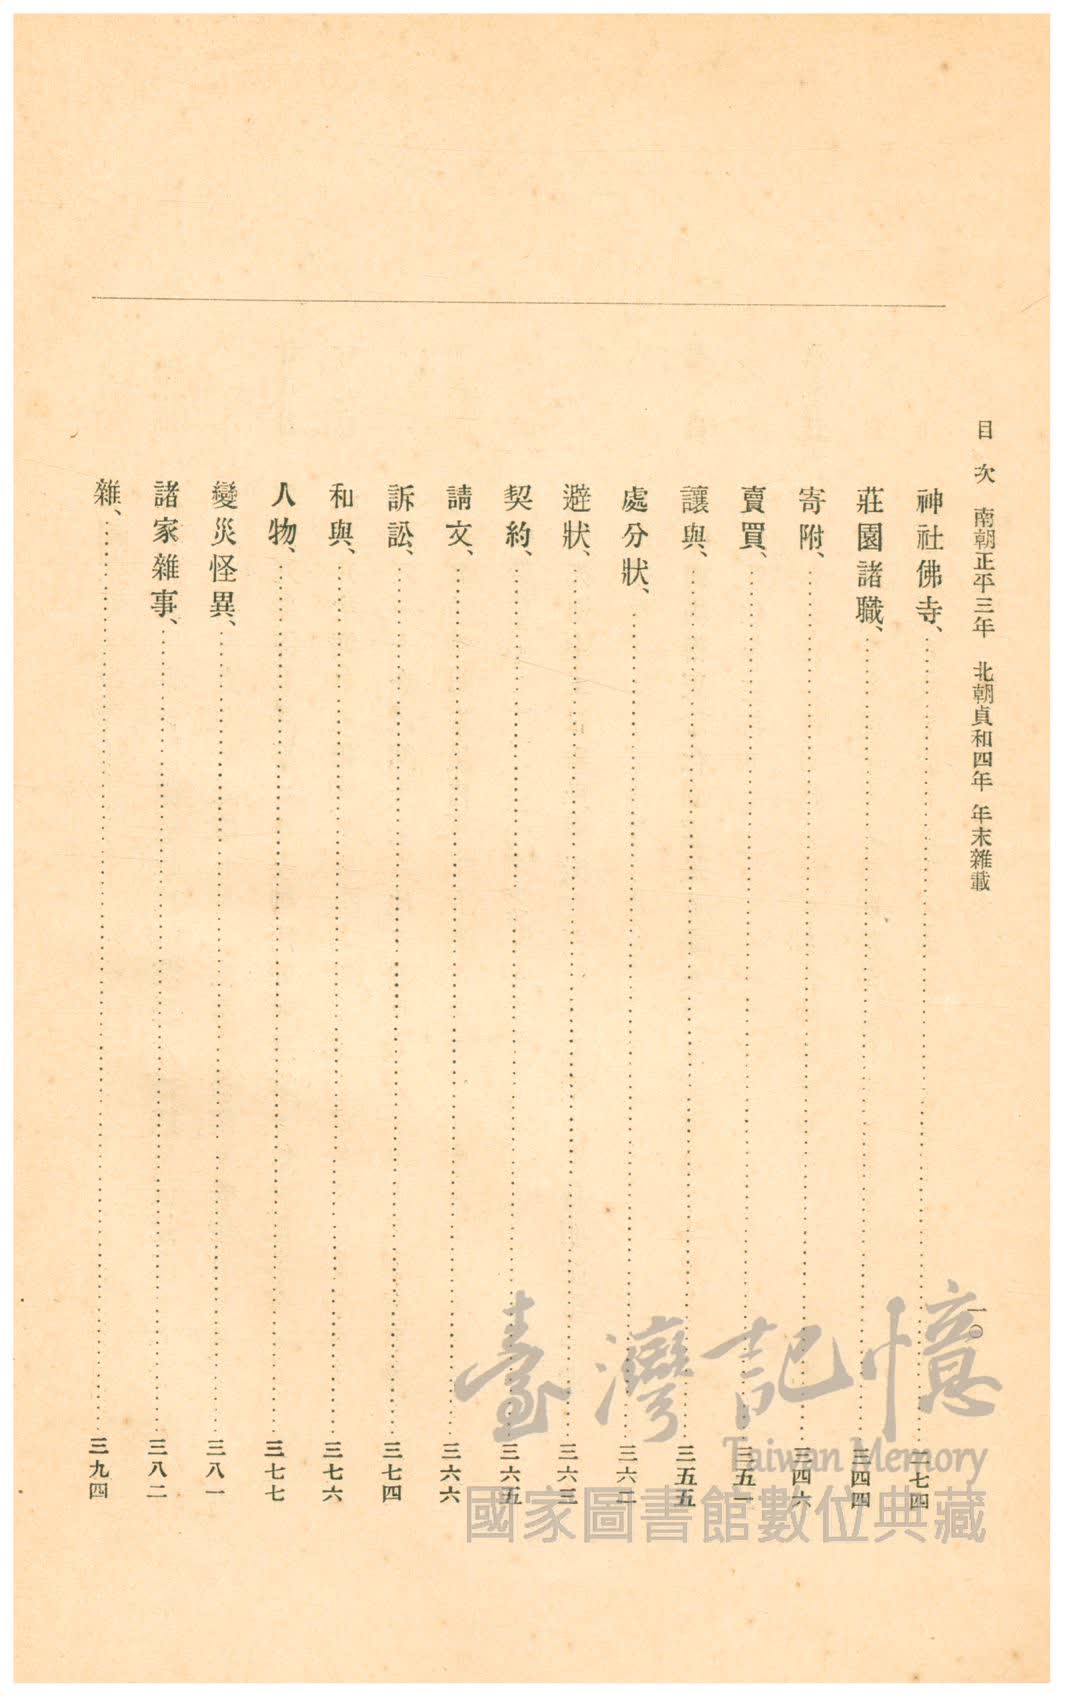 目次 南朝正平三年 北朝貞和四年 年末雜載
一〇
神社佛寺、……二七四
莊園諸職、……三四四
寄附、……三四六
賣買、……三五一
讓與、……三五五
處分狀、……三六二
避狀、……三六三
契約、……三六五
請文、……三六六
訴訟、……三七四
和與、……三七六
人物、……三七七
變災怪異、……三八一
諸家雜事、……三八二
雜、……三九四
臺灣記憶
Taiwan Memory
國家圖書館數位典藏